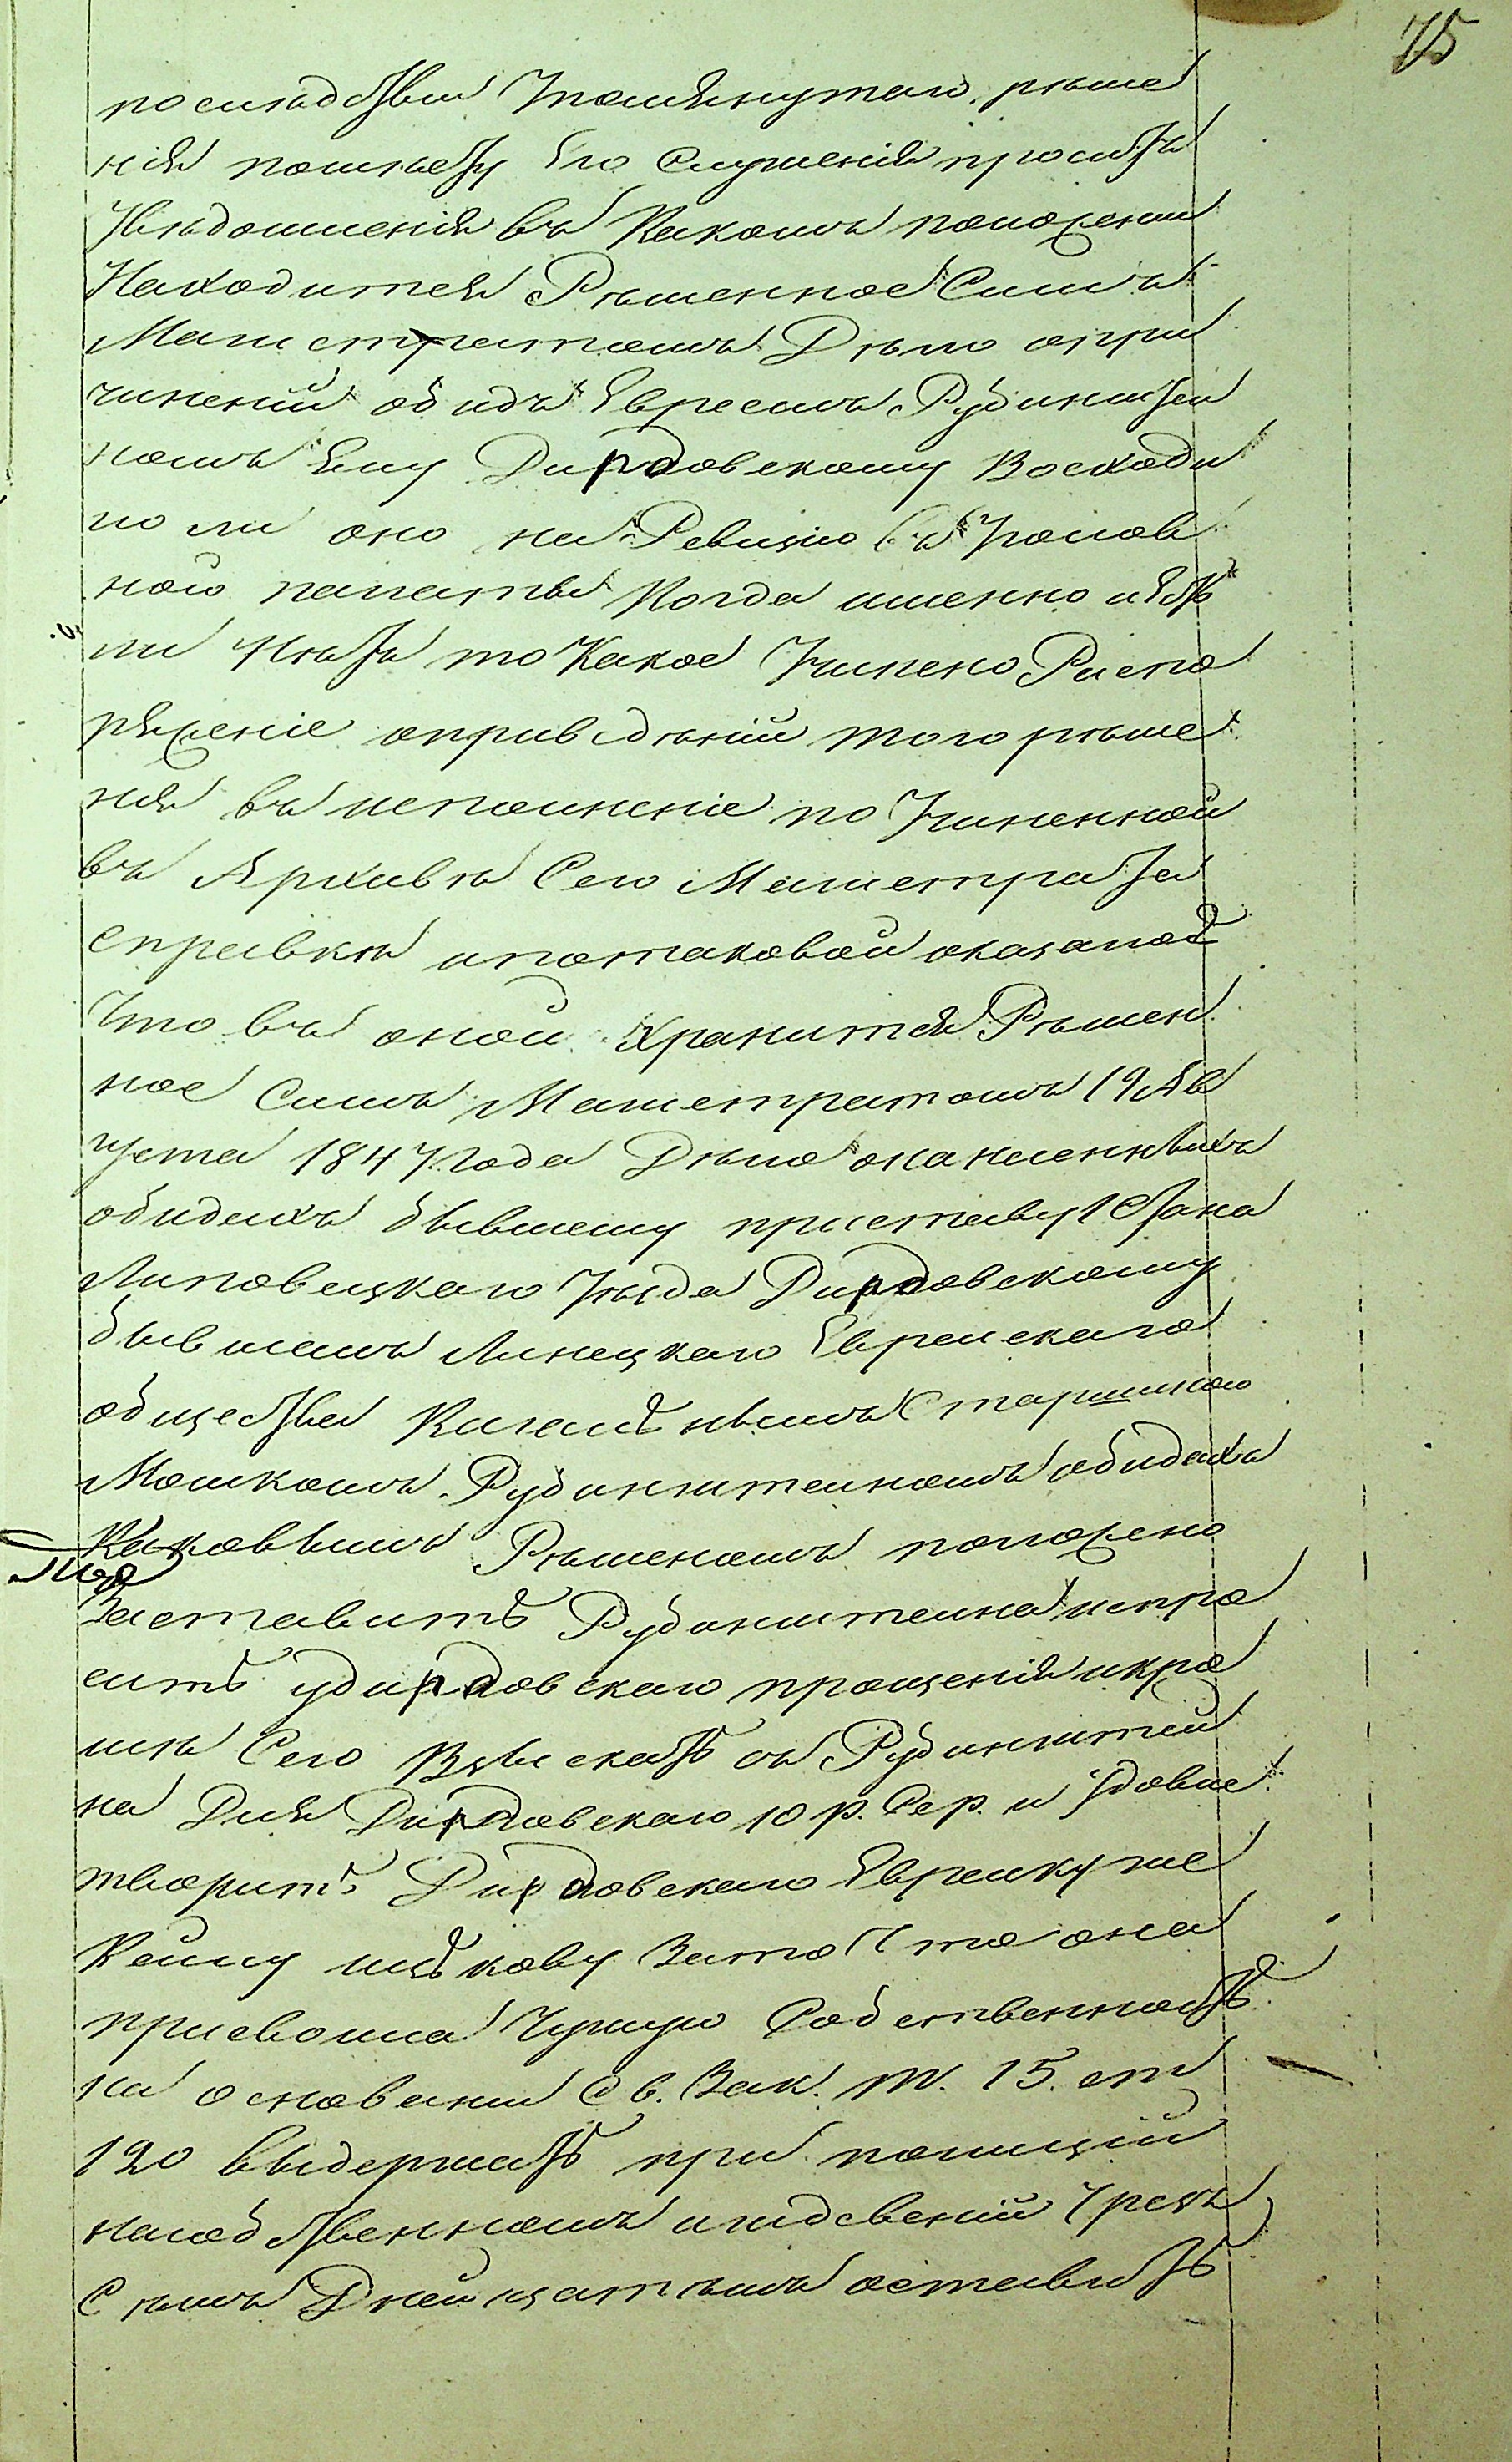 75
послѣдствии Упомянутаго рѣше
нія помнѣту Его Служенія проситъ
Увѣдомленія въ Какомъ положении
Находится Рѣшенное Симъ
Магистратомъ Дѣло опри
чинений обидъ Евреемъ Рубинштей
номъ Ему Дирдовскому Восходи
ло ли оно на Ревизію въ Уголов
ной палаты Когда именно иЕст
ли Нѣтъ то Какое Учинено Распо
ряжение оприведѣній того рѣше
нія въ исполнение по Учиненной
въ Архивѣ Сего Магистрата
справкѣ ипотаковой оказалось
Что въ оной Хранится Рѣшен
ное Симъ Магистратомъ 19 Ав
густа 1847 Года Дѣло онанесенныхъ
обидахъ бывшему приставу 1 Стана
Липовецкаго Уѣзда Дирдовскому
бывшимъ Линецкаго Еврейскаго
общества Кагальнымъ Старшиною
Мошкомъ Рубинштейномъ обидахъ
Каковымъ Рѣшеномъ положено
Заставить Рубинштейна испро
сить удирдовскаго прощения икро
мѣ Сего Взыскать съ Рубинштей
на Для Дирдовскаго 10 р. Сер. и Удовле
творить Дирдовскаго Еврейку же
Кейлу Ицькову Зато Что она
присвоила Чужую Собственность
на основании Св. Зак. т. 15. ст
120 выдержать при полиции
насобственномъ иждевений Чрезъ
Семь Дней затѣмъ оставить